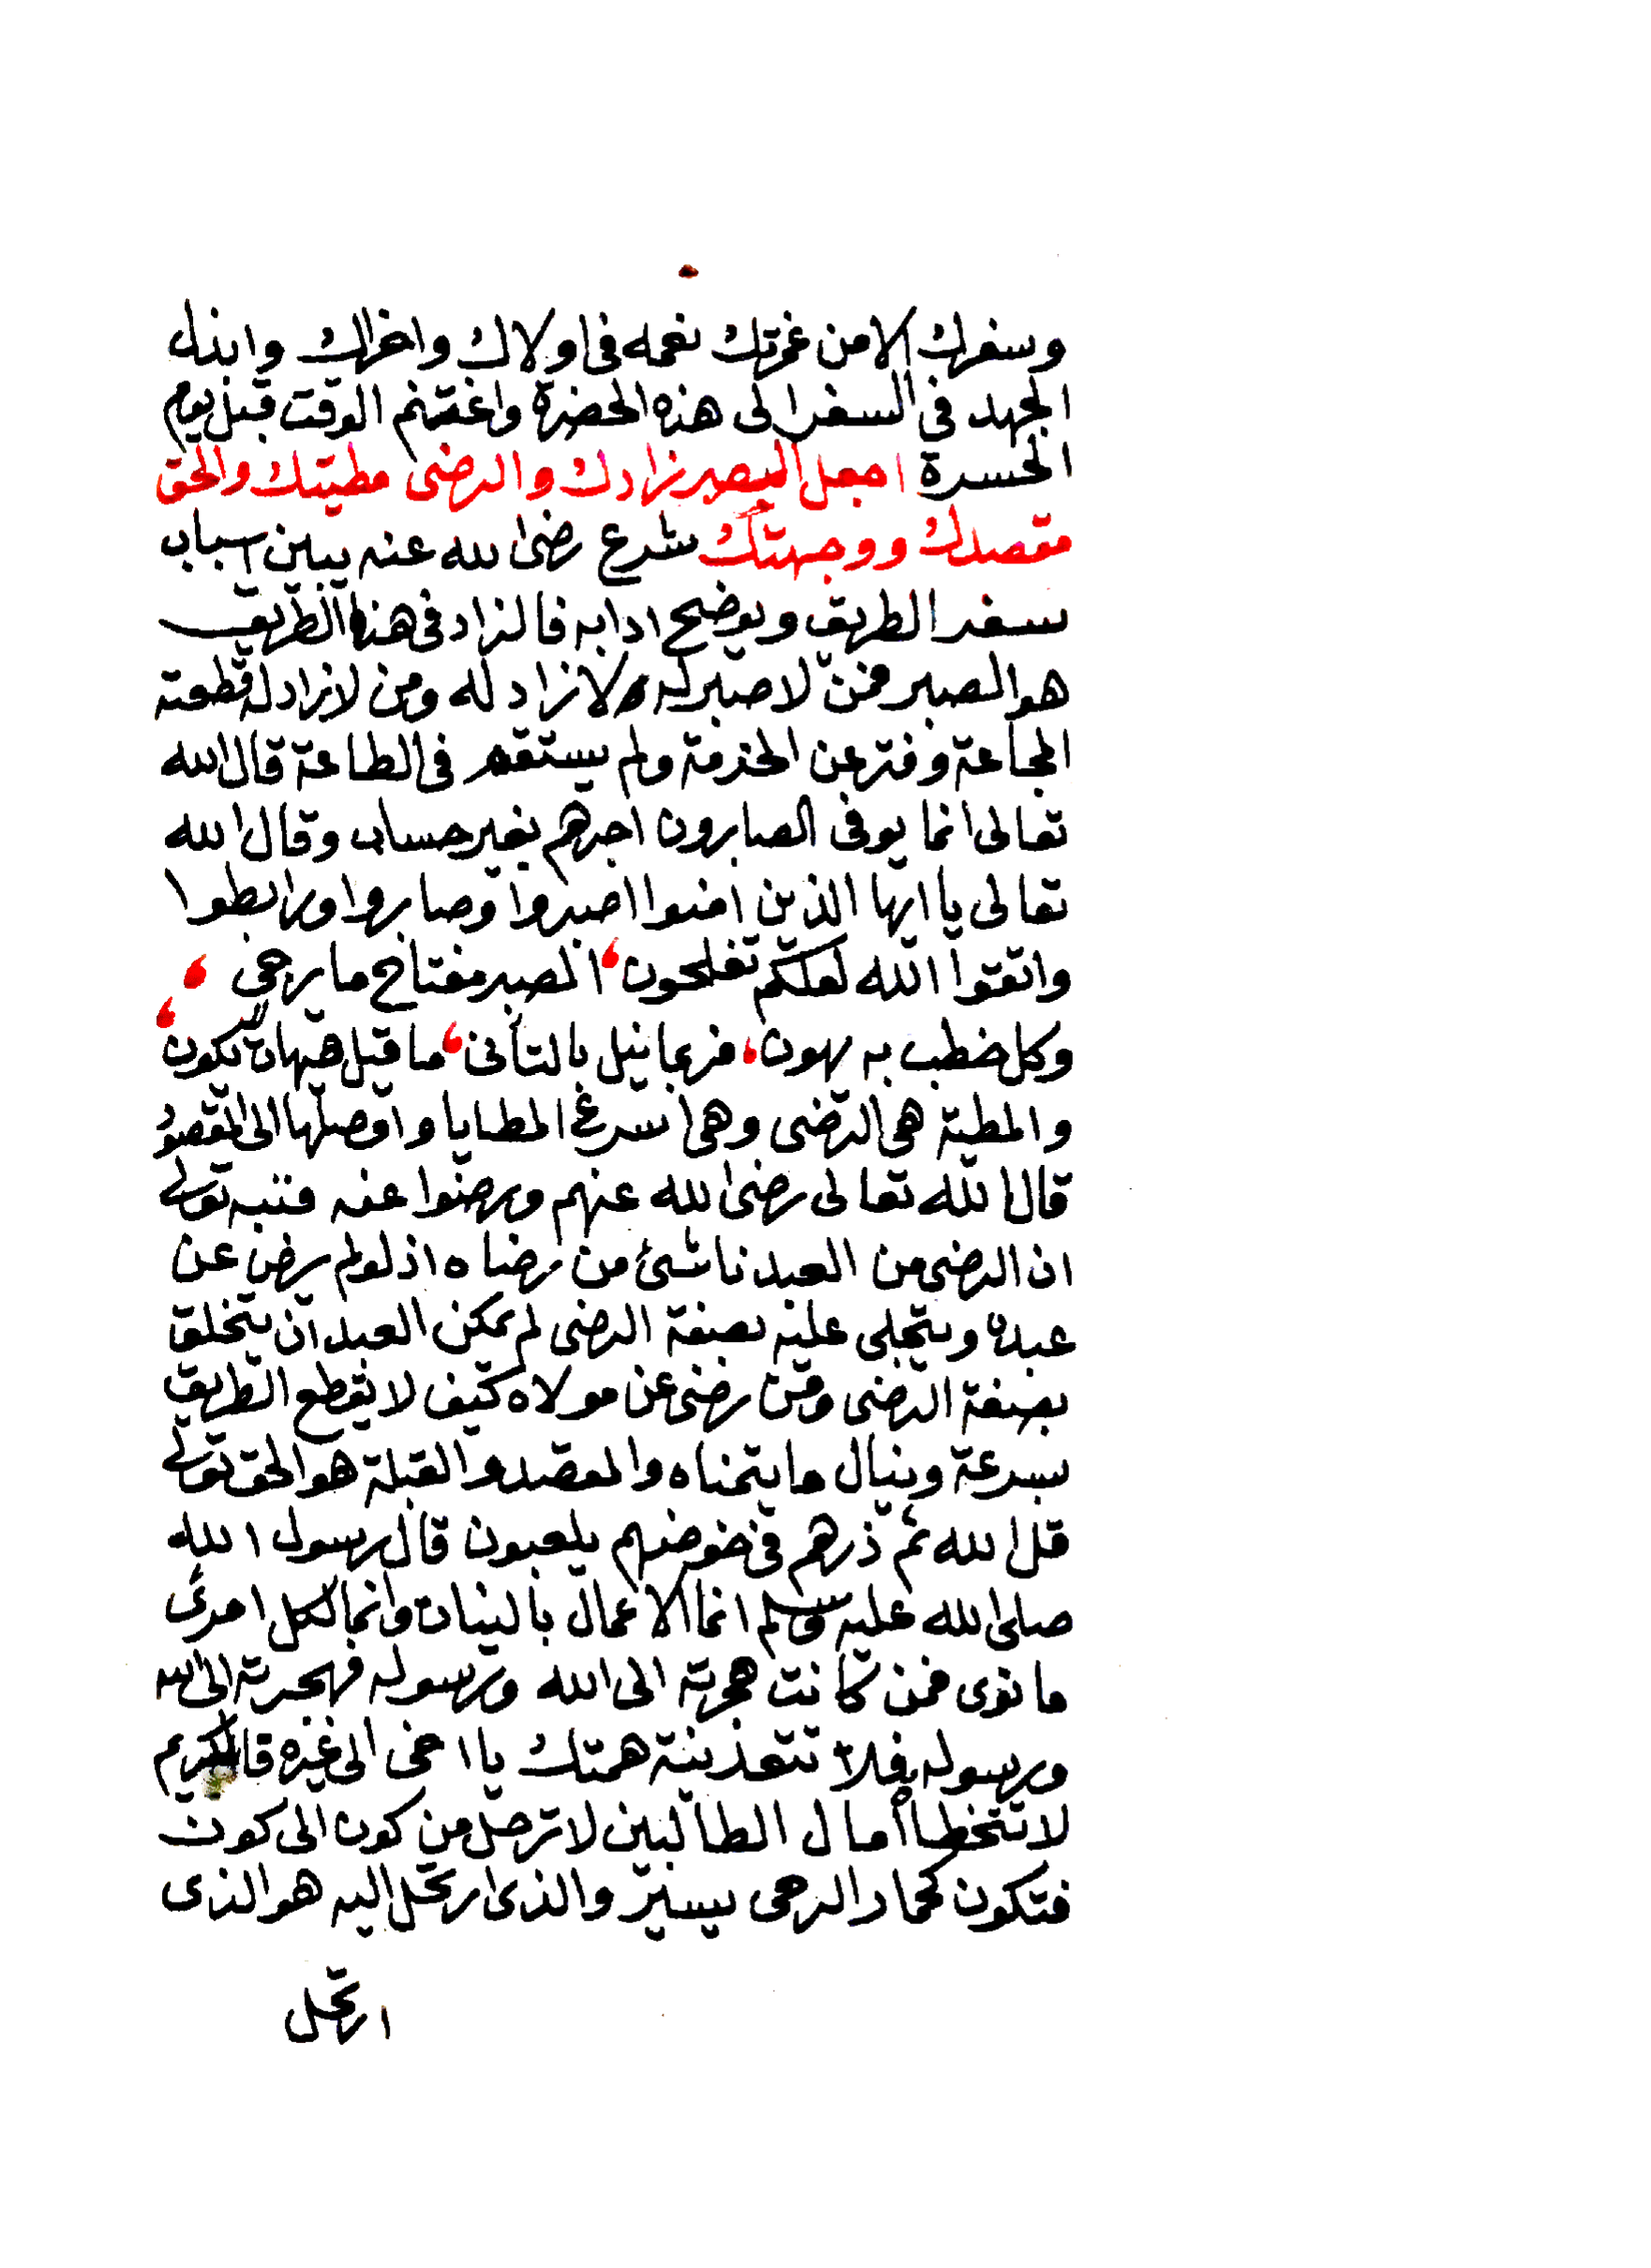 وسفرك الا من غمرتك نعمه فى اولاك واخراك وابذل
الجهد فى السفر الى هذه الحضرة واغتنم الوقت قبل يوم
الحسرة اجعل الصبر زادك والرضى مطيتك والحق
مقصدك ووجهتك شرع رضى الله عنه يبين اسباب
سفر الطريق ويوضح ادابه فالزاد فى هذا الطريق
هو الصبر فمن لا صبر له لا زاد له ومن لا زاد له قطعته
المجاعة وفتر عن الخدمة ولم يستقم فى الطاعة قال الله
تعالى انما يوفى الصابرون اجرهم بغير حساب وقال الله
تعالى يا ايها الذين امنوا اصبروا وصابروا ورابطوا
واتقوا الله لعلكم تفلحون، الصبر مفتاح ما يرجى ،
وكل خطب به يهون، فربما نيل بالتأنى، ما قيل هيهات لا يكون ،
والمطية هى الرضى وهى اسرع المطايا واوصلها الى المقصود
قال الله تعالى رضى الله عنهم ورضوا عنه فنبه تعالى
ان الرضى من العبد ناشئ من رضاه اذ لو لم يرض عن
عبده ويتجلى عليه بصفة الرضى لم يمكن العبد ان يتخلق
بصفة الرضى ومن رضى عن مولاه كيف لا يقطع الطريق
بسرعة وينال ما يتمناه والمقصد والقبلة هو الحق تعالى
قل الله ثم ذرهم فى خوضهم يلعبون قال رسول الله
صلى الله عليه وسلم انما الاعمال بالنيات وانما لكل امرئ
ما نوى فمن كانت هجرته الى الله ورسوله فهجرته الى الله
ورسوله فلا تتعد نية همتك يا اخى الى غيره فالكريم
لا تتخطاه أمال الطالبين لا ترحل من كون الى كون
فتكون كحمار الرحى يسير والذى ارتحل اليه هو الذى
ارتحل